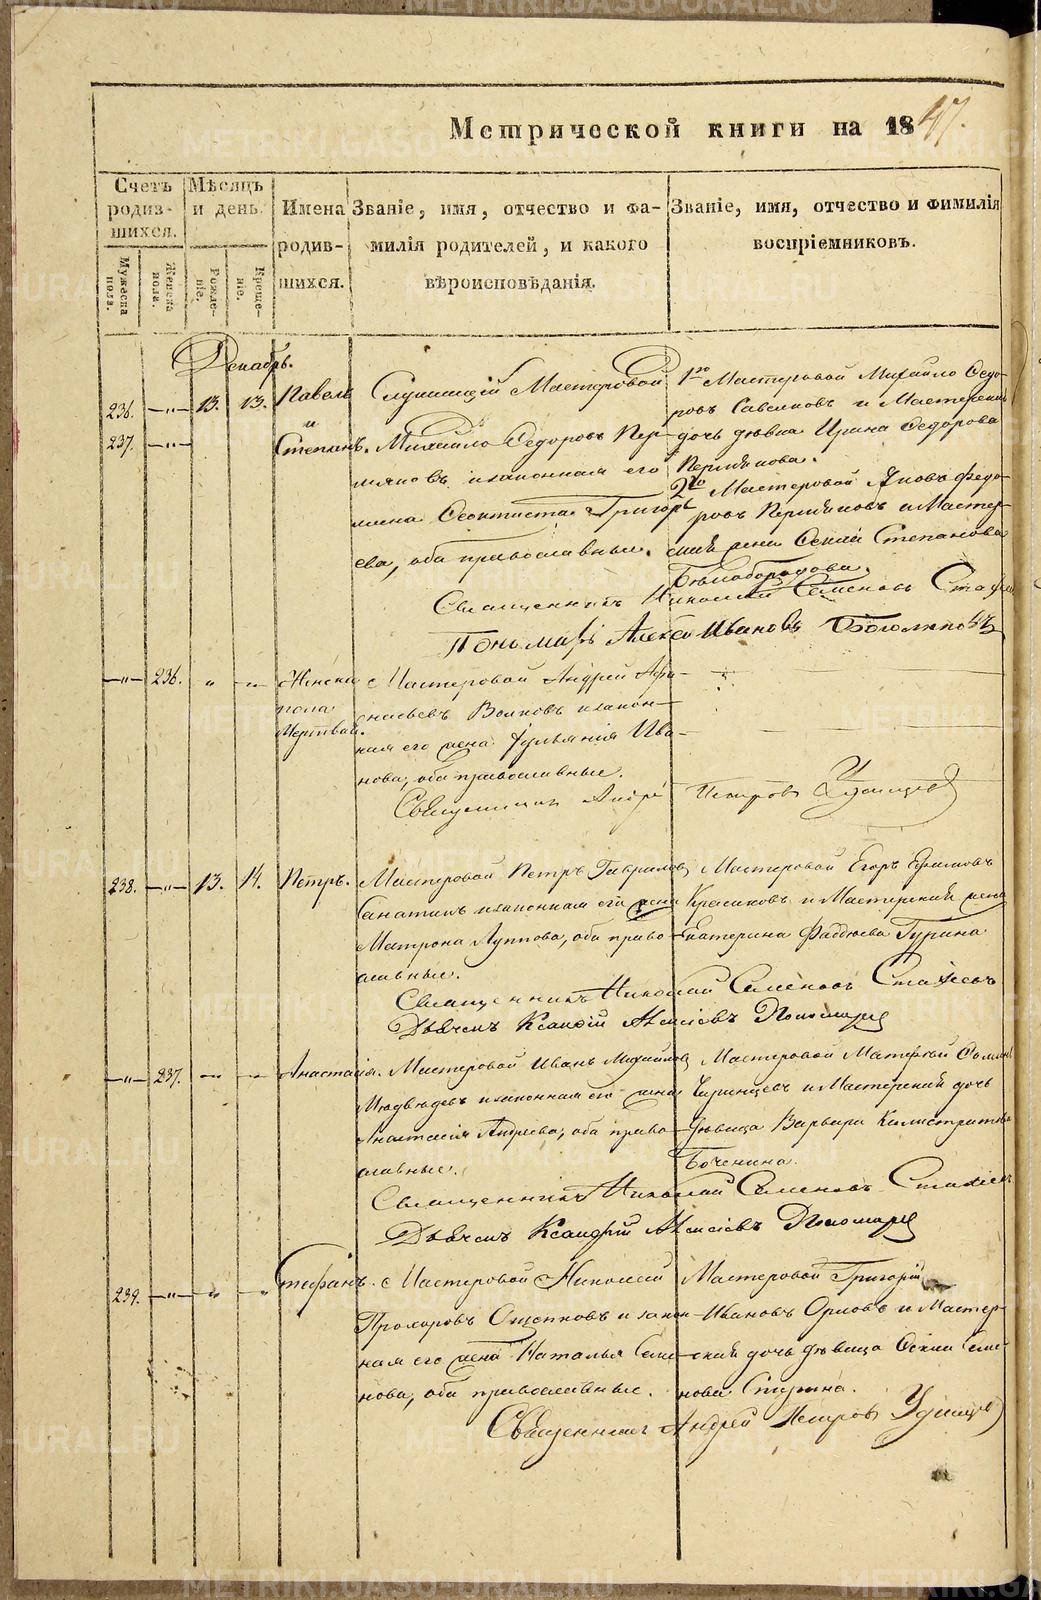 Метрической книги на 1847.
Счетъ родив-шихся.
Мужеска пола.
Женска пола.
Мѣсяцъ и день.
Рожде-ніе.
Креще-ніе.
Имена родив-шихся.
Званіе, имя, отчество и фа-
милія родителей, и какого
вѣроисповѣданія.
Званіе, имя, отчество и фимилія
воспріемниковъ.
Декабрь.
236. —"— 13. 13. Павелъ
и
237. —"— Степанъ.
Служащій Мастеровой
Михайло Ѳедоровъ Пер-
мяковъ и законная его
жена Ѳеоктиста Григорь
ева, оба православные.
1го Мастеровой Михайло Ѳедо-
ровъ Савелковъ и Мастерская
дочь дѣвка Ирина Ѳедорова
Пермякова.
2го Мастеровой Яковъ Ѳедо-
ровъ Пермяковъ и Мастер-
ская жена Степанова
Бѣлобородова.
Священникъ Николай Семеновъ
Пономарь Алексѣй Ивановъ Боголеповъ
—"— 236. " —"— Женска
пола
Мертвая.
Мастеровой Андрей Афа-
насьевъ Волковъ и закон-
ная его жена Іульянія Ива-
нова, оба православные.
Священникъ Андрей Петровъ Удинцевъ
238. —"— 13. 14. Петръ.
Мастеровой Петръ Гавриловъ
и законная его жена
Матрона Луппова, оба право-
славные.
Мастеровой Егоръ Ефимовъ
Красиковъ и Мастерская жена
Екатерина Фаддѣева Гурина
Священникъ Николай Семеновъ
Дьячекъ Алексіевъ Пономарев
—"— 237. —"— —"— Анастасія.
Мастеровой Иванъ Михайловъ
Медвѣдевъ и законная его жена
Анастасія Андреева, оба право-
славные.
Мастеровой Матфей
и Мастерская дочь
дѣвица Варвара Калистратова
Боченина.
Священникъ Николай Семеновъ
Дьячекъ Алексіевъ Пономарев
239. —"— —"— " Стефанъ.
Мастеровой Николай
Прохоровъ Ощепковъ и закон-
ная его жена Наталья Семе-
нова, оба православные.
Мастеровой Григорій
Ивановъ Орловъ и Мастер-
ская дочь дѣвица Семе-
нова
Священникъ Андрей Петровъ Удинцевъ
METRIKI.GASO-URAL.RU